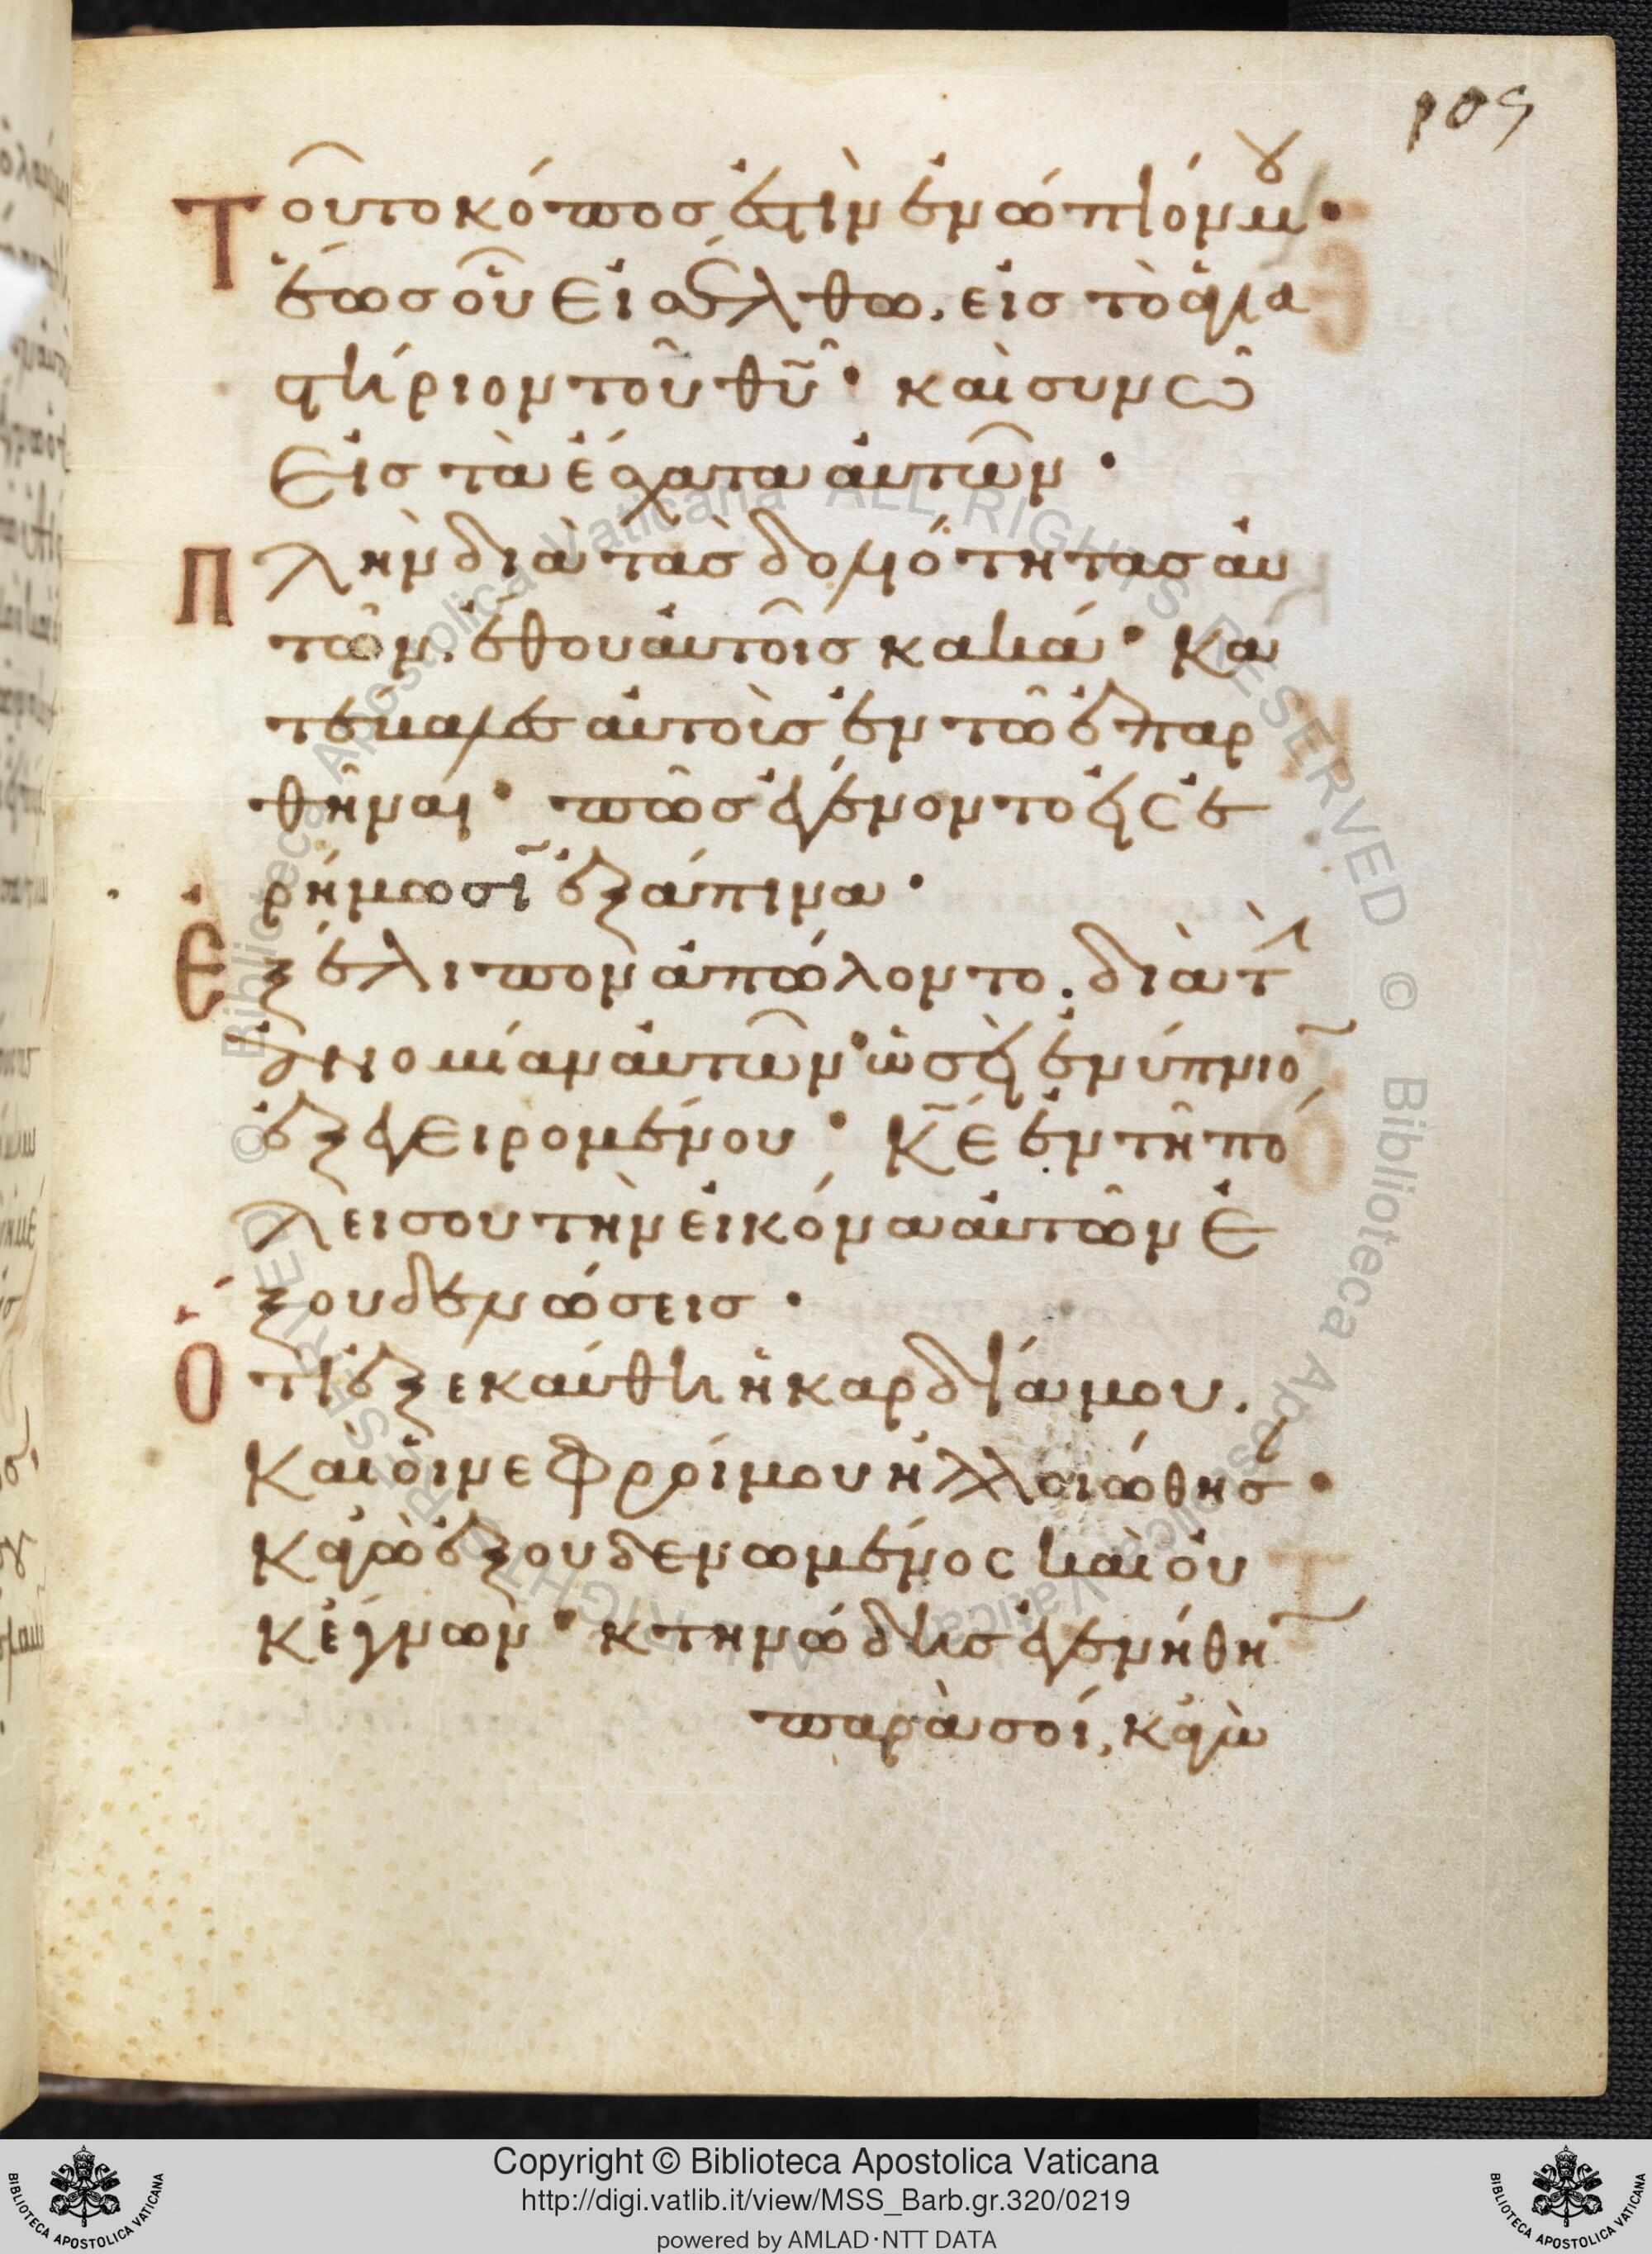 109
Τοῦτο κόπος ἐστὶν ἐνώπιόν μου·
ἕως οὗ εἰσέλθω, εἰς τὸ ἁγια
στήριον τοῦ θ̅υ̅· καὶ συνῶ
εἰς τὰ ἔσχατα αὐτῶν·
Πλὴν διὰ τὰς δολιότητας αὐ
τῶν, ἔθου αὐτοῖς κακά· κα
τέβαλες αὐτοὺς ἐν τῶ ἐπαρ
θῆναι· πῶς ἐγένοντο εἰς ἐ
ρήμωσϊ̅ ἐξάπινα·
Ἐξέλιπον ἀπώλοντο. διὰ τὴν
ἀνομίαν αὐτῶν· ὡσεὶ ἐνύπνιο̅
ἐξεγειρομένου· κ̅ε̅ ἐν τῆ πό
λει σου τὴν εἰκόνα αὐτῶν ἐ
ξουδενώσεις·
Ὅτι ἐξεκαύθη ἡ καρδία μου.
καὶ οἱ νεφροί μου ἠλλοιώθησαν·
κἀγὼ ἐξουδενωμένος καὶ οὐ
κ ἔγνων· κτηνώδης ἐγενήθη̅
παρὰ σοί, κἀγὼ
©Biblioteca Apostolica Vaticana ALL RIGHTS RESERVED
© Biblioteca Apostolica Vaticana ALL RIGHTS RESERVED
Copyright © Biblioteca Apostolica Vaticana
http://digi.vatlib.it/view/MSS_Barb.gr.320/0219
powered by AMLAD·NTT DATA
BIBLIOTECA APOSTOLICA VATICANA
BIBLIOTECA APOSTOLICA VATICANA